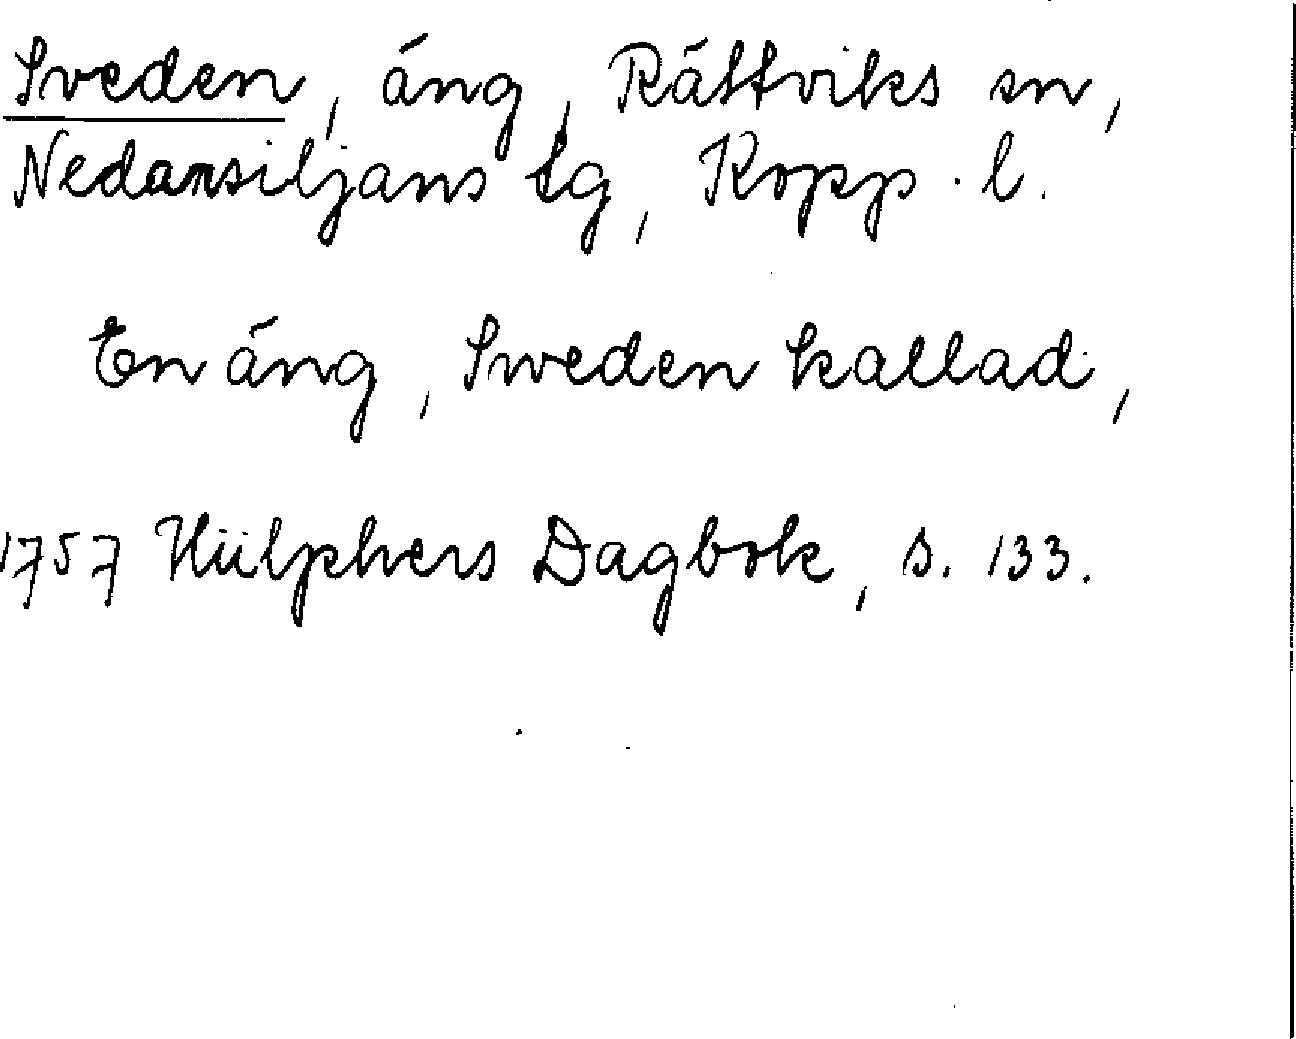 Sveden, äng, Rättviks sn,
Nedansiljans tg, Kopp. l.
En äng, Sweden kallad,
1757 Hülphers Dagbok, s. 133.